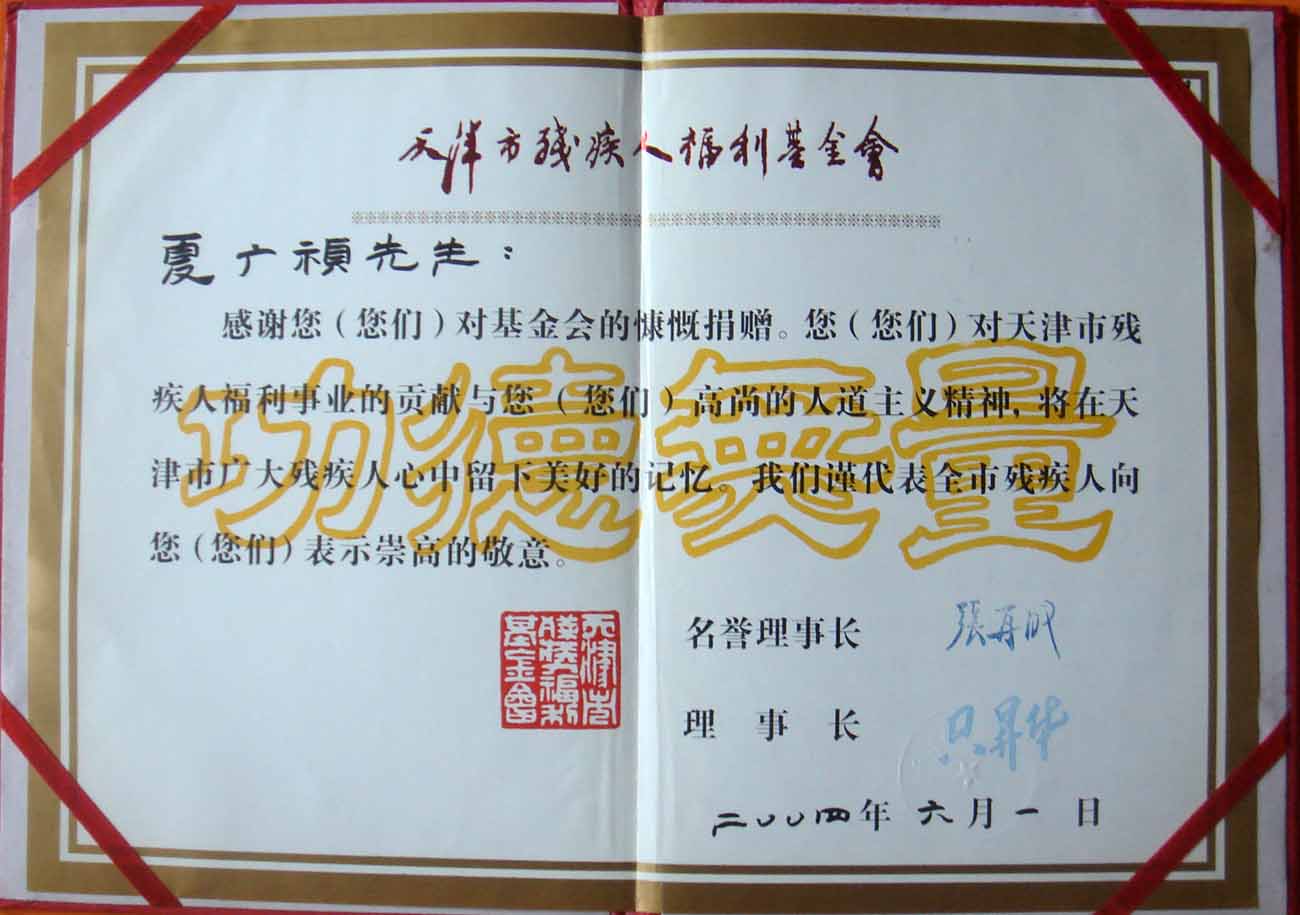 天津市残疾人福利基金會
夏广禎先生：
感谢您（您们）对基金会的慷慨捐赠。您（您们）对天津市残
疾人福利事业的贡献与您（您们）高尚的人道主义精神，将在天
津市广大残疾人心中留下美好的记忆。我们谨代表全市残疾人向
您（您们）表示崇高的敬意。
功德無量
天津市残疾人福利基金會
名誉理事长 張再旺
理事长 只昇华
二〇〇四年六月一日